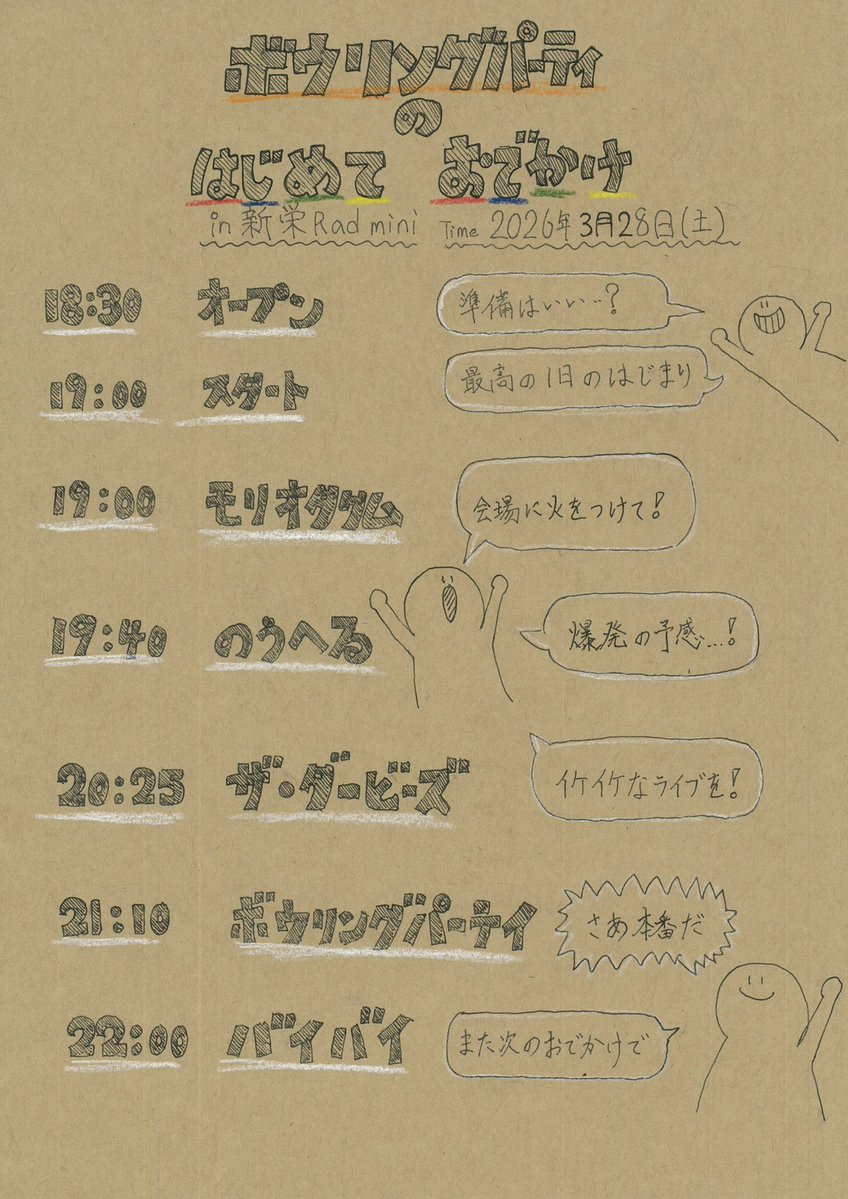 ボウリングパーティ
の
はじめて おでかけ
in 新栄Rad mini Time 2026年3月28日(土)
18:30 オープン 準備はいい‥?
19:00 スタート 最高の1日のはじまり
19:00 モリオダクム 会場に火をつけて!
19:40 のうへる 爆発の予感…!
20:25 ザ・ダービーズ イケイケなライブを!
21:10 ボウリングパーティ さあ本番だ
22:00 バイバイ また次のおでかけで